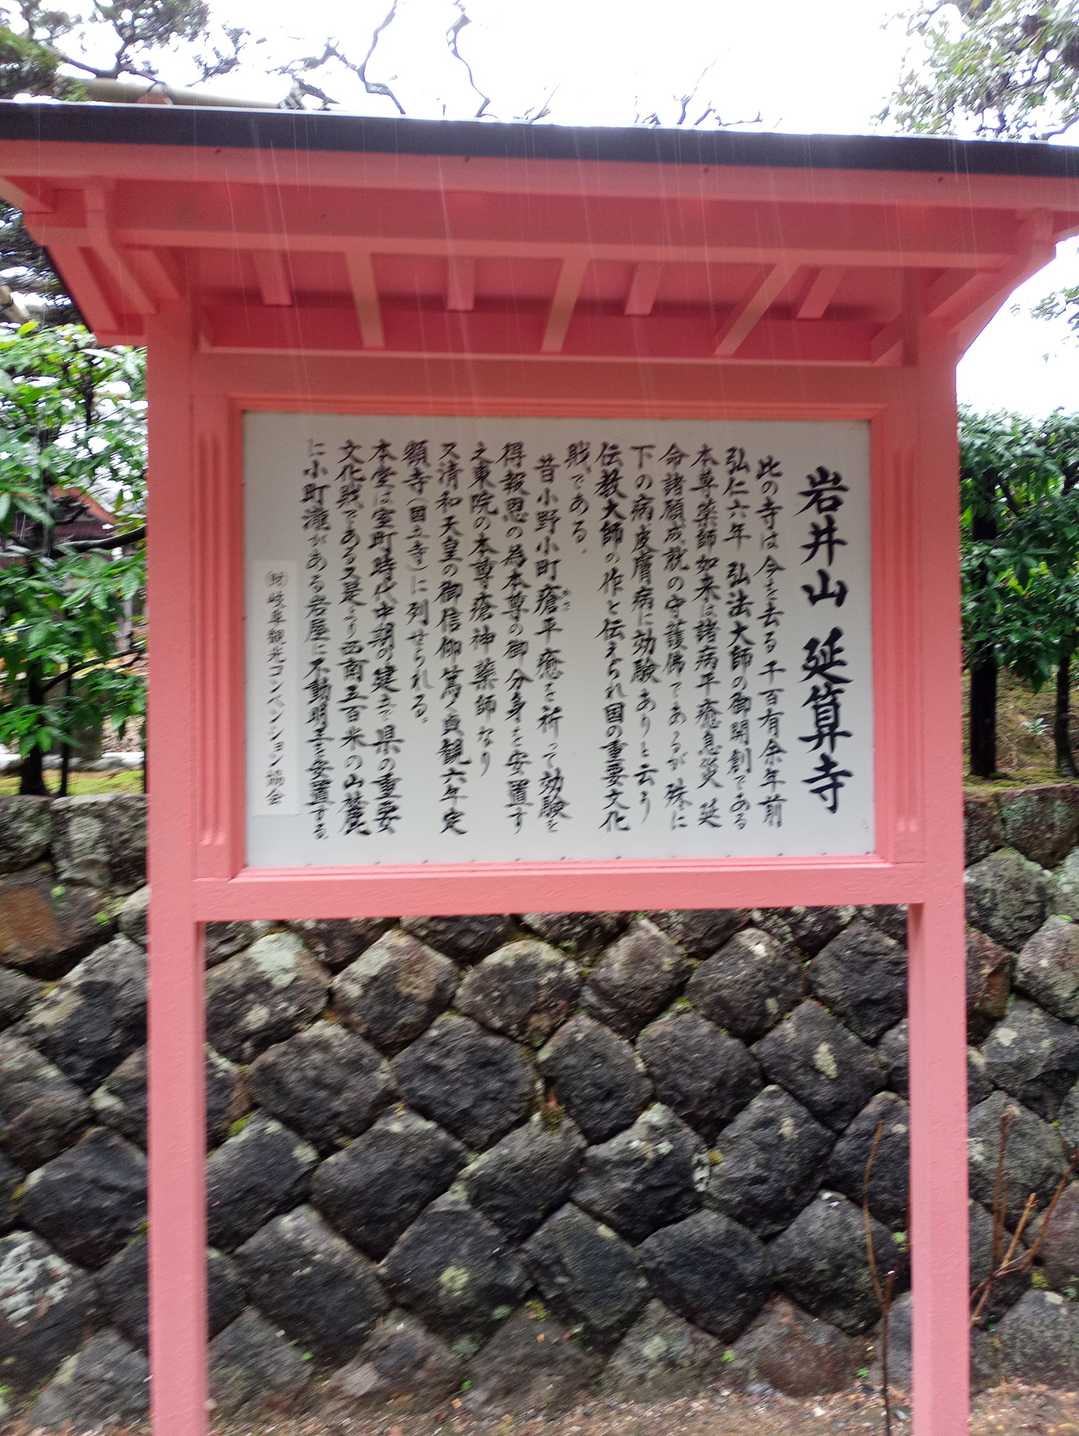 岩井山 延算寺
此の寺は今を去る千百有余年前
弘仁六年 弘法大師の御開創である
本尊薬師如来は諸病平癒息災延
命諸願成就の守護佛であるが殊に
下の病皮膚病に効験ありと云う
伝教大師の作と伝えられ国の重要文化
戝である.
昔小野小町瘡平癒を祈って効験を
得報恩の為本尊の御分身を安置す
之東院の本尊瘡神薬師なり
又清和天皇の御信仰篤く貞観六年定
額寺(国立寺)に列せられる。
本堂は室町時代中期の建立で県の重要
文化戝である又是より西南五百米の山麓
に小町滝がある岩屋に不動明王を安置する。
㈶岐阜観光コンベンション協会